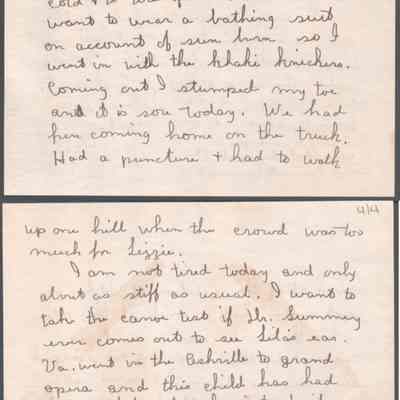 want to wear a bathing suit
on account of sun burn so I
went in with the khaki knickers.
Coming out I stumped my toe
and it is sore today. We had
fun coming home on the truck.
Had a puncture + had to walk
4/4
up one hill when the crowd was too
much for Lizzie.
I am not tired today and only
about as stiff as usual. I want to
take the canoe test if Dr. Summey
ever comes out to see Lila's ear.
Va. went in the Asheville to grand
opera and this child has had